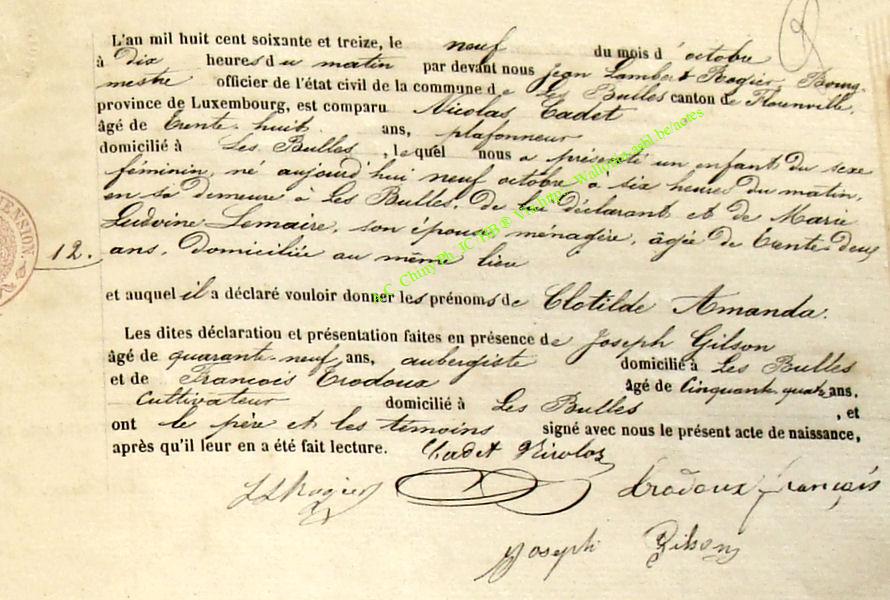 L'an mil huit cent soixante et treize, le neuf du mois d'octobre
à Dix heures du matin par devant nous Jean Lambert Rogier, Bourg-
mestre officier de l'état civil de la commune de Les Bulles canton de Florenville,
province de Luxembourg, est comparu Nicolas Cadet
âgé de trente-huit ans, plafonneur
domicilié à Les Bulles, lequel nous a présenté un enfant du sexe
féminin, né aujourd'hui neuf octobre à six heures du matin,
en sa demeure à Les Bulles, de lui déclarant et de Marie
Ludvine Lemaire, son épouse, ménagère, âgée de trente-deux
12. ans, domiciliée au même lieu
et auquel il a déclaré vouloir donner les prénoms de Clotilde Amanda.
Les dites déclaration et présentation faites en présence de Joseph Gilson
âgé de quarante-neuf ans, aubergiste domicilié à Les Bulles
et de François Trodoux âgé de cinquante-quatre ans,
Cultivateur domicilié à Les Bulles, et
ont le père et les témoins signé avec nous le présent acte de naissance,
après qu'il leur en a été fait lecture. Cadet Nicolas
JLRogier trodoux françois
Joseph Gilson